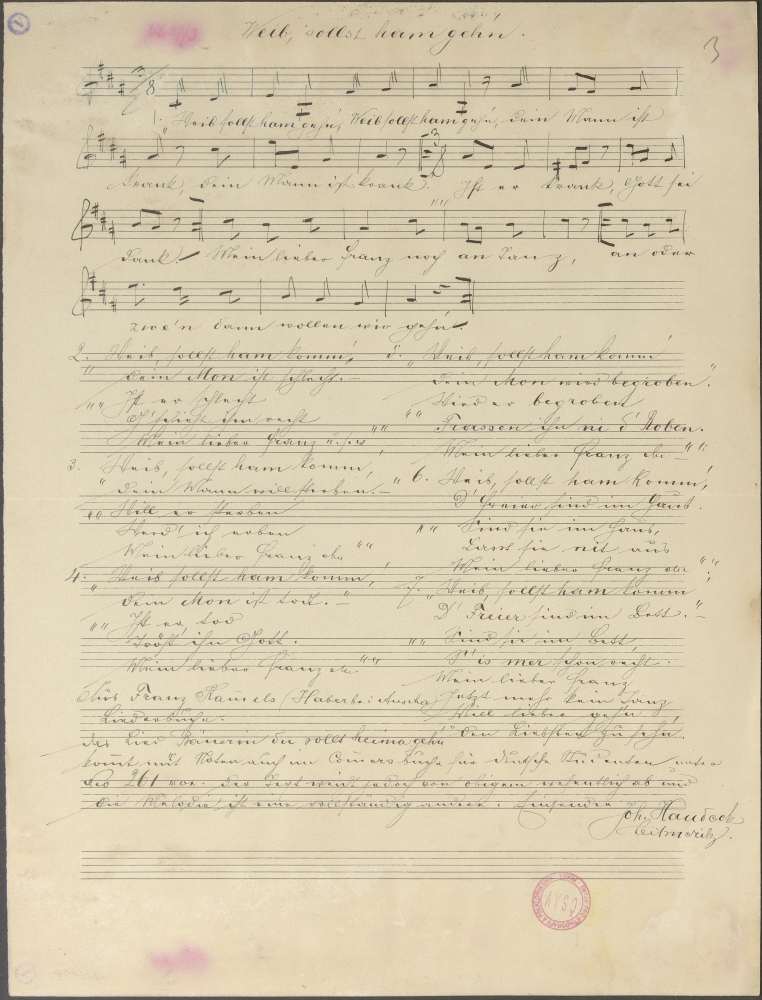 Weib, sollst ham gehn.
3
1. "Weib sollst ham geh'n, Weib sollst ham geh'n, dein Mann ist
krank, dein Mann ist krank." Ist er krank, Gott sei
Dank! Mein lieber Franz noch an Tanz, an oder
zwe'n dann wollen wir geh'n
2. Weib, sollst ham komm',
" dein Mon ist schlecht. "
"" Ist er schlecht
G'schieht ihm recht
Mein lieber Franz
3. Weib, sollst ham komm',
" dein Mann will sterben. "
"" Will er sterben
Werd' ich erben
Mein lieber Franz etc. ""
4. Weib sollst ham komm',
" dein Mon ist tod. "
"" Ist er tod
Tröst' ihn Gott.
Mein lieber Franz etc. ""
5. "Weib sollst ham komm'
dein Mon wird begroben."
Wird er begroben
Frassen ihn ni d' Roben.
Mein lieber Franz etc. ""
6. Weib, sollst ham komm',
D' Freier sind im Haus.
"" Sind sie im Haus,
Lass sie nit aus
Mein lieber Franz etc. ""
7. "Weib, sollst ham komm'
D' Freier sind im Bett. "
"" Sind sie im Bett,
S' is mer schon recht.
Mein lieber Franz
Jetzt mehr kein Tanz
Will lieber gehn
Den Liebsten zu sehn.
Aus Franz (Haberbei Auscha)
Liederbuche.
das Lied Bäuerin du sollst heimagehn
kommt mit Noten auch im Commersbuche für deutsche Studenten unter
No 261 vor. Der Text weicht jedoch von obigem wesentlich ab und
die Melodie ist eine vollständig andere. Einsender
Joh. Haudeck
Leitmeritz.